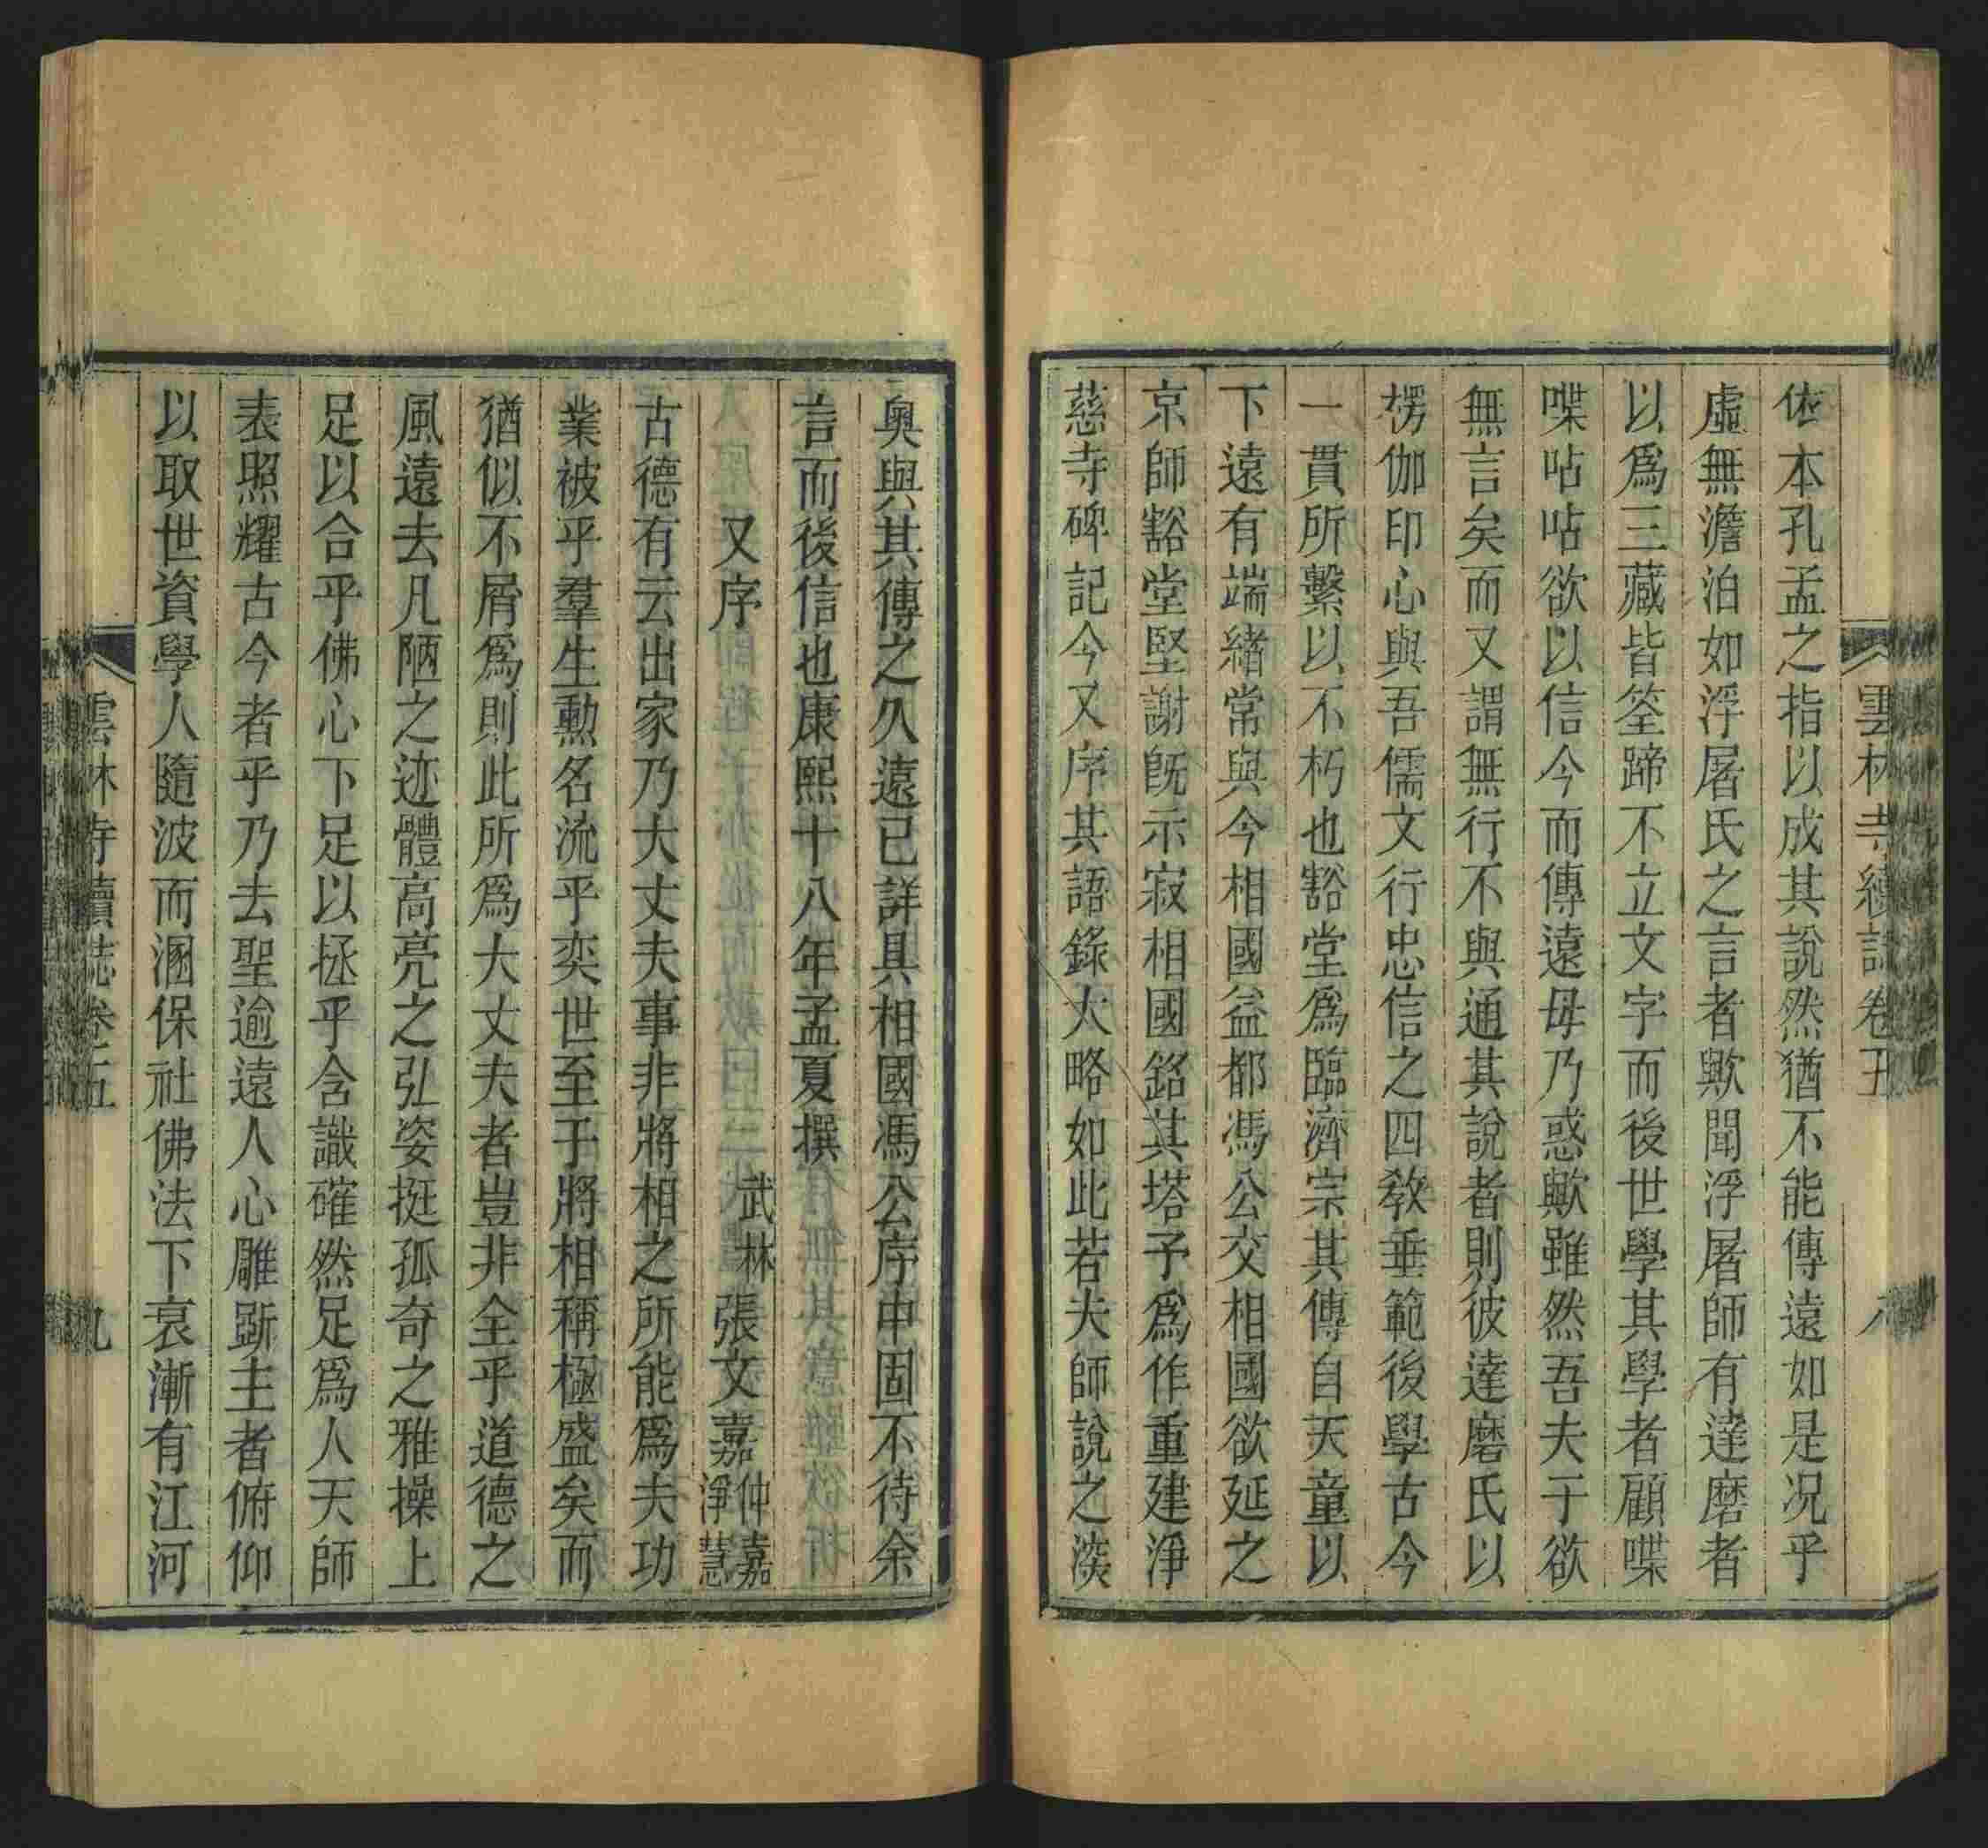 雲林寺續誌卷五
八
依本孔孟之指以成其說然猶不能傳遠如是况乎
虛無澹泊如浮屠氏之言者歟聞浮屠師有達磨者
以爲三藏皆筌蹄不立文字而後世學其學者顧喋
喋呫呫欲以信今而傳遠毋乃惑歟雖然吾夫于欲
無言矣而又謂無行不與通其說者則彼達磨氏以
楞伽印心與吾儒文行忠信之四敎垂範後學古今
一貫所繫以不朽也豁堂爲臨濟宗其傳自天童以
下遠有端緖常與今相國益都馮公交相國欲延之
京師豁堂堅謝旣示寂相國銘其塔予爲作重建淨
慈寺碑記今又序其語錄大略如此若夫師說之淡
奥與其傳之久遠已詳具相國馮公序中固不待余
言而後信也康熙十八年孟夏撰
又序 武林張文嘉仲嘉淨慧
古德有云出家乃大丈夫事非將相之所能爲夫功
業被乎羣生勳名流乎奕世至于將相稱極盛矣而
猶似不屑爲則此所爲大丈夫者豈非全乎道德之
風遠去凡陋之迹體高亮之弘姿挺孤奇之雅操上
足以合乎佛心下足以拯乎含識確然足爲人天師
表照耀古今者乎乃去聖逾遠人心雕斲主者俯仰
以取世資學人隨波而溷保社佛法下衰漸有江河
雲林寺續誌卷五
九